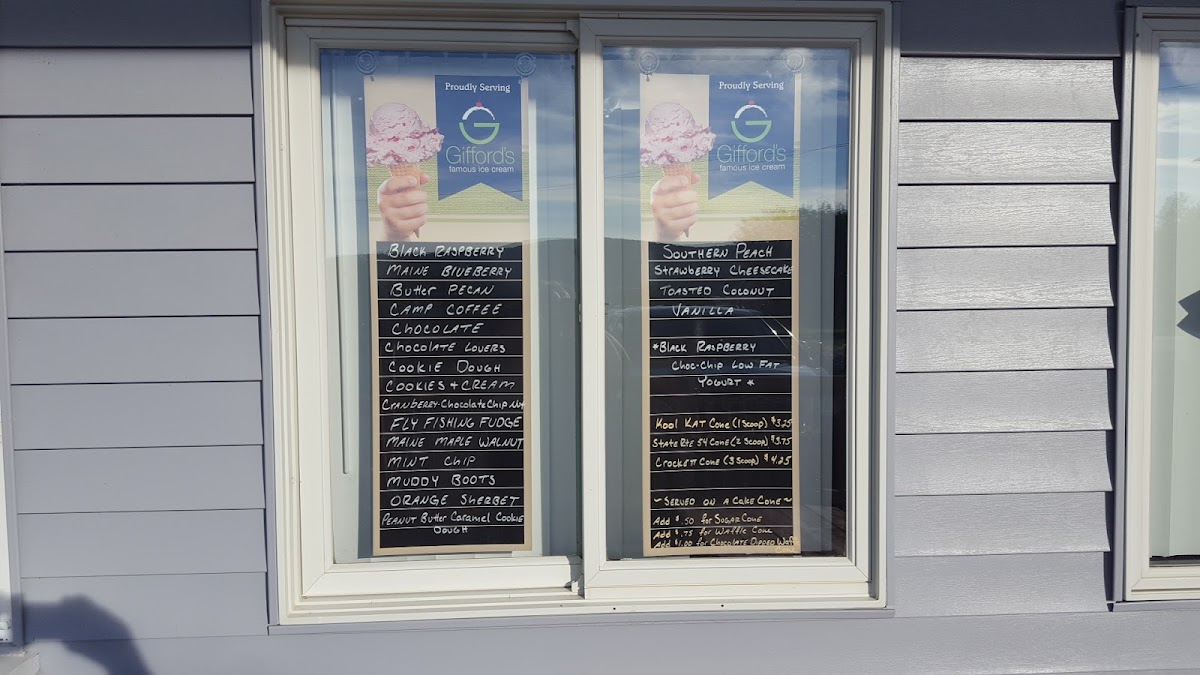 Proudly Serving
G
Gifford's
famous ice cream
BLACK RASPBERRY
MAINE BLUEBERRY
Butter PECAN
CAMP COFFEE
CHOCOLATE
CHOCOLATE LOVERS
COOKIE DOUGH
COOKIES + CREAM
CRANBERRY-Chocolate Chip Nut
FLY FISHING FUDGE
MAINE MAPLE WALNUT
MINT CHIP
MUDDY BOOTS
ORANGE SHERBET
PEANUT Butter Caramel Cookie
DOUGH
Proudly Serving
G
Gifford's
famous ice cream
SOUTHERN PEACH
Strawberry Cheesecake
TOASTED COCONUT
VANILLA
*BLACK RASPBERRY
CHOC-CHIP LOW FAT
YOGURT *
KOOL KAT CONE (1 SCOOP) $3.25
STATE RTE 54 CONE (2 SCOOP) $3.75
CROCKETT CONE (3 SCOOP) $4.25
~ SERVED ON A CAKE CONE ~
Add $.50 for SUGAR CONE
Add $.75 for WAFFLE CONE
Add $1.00 for CHOCOLATE DIPPED